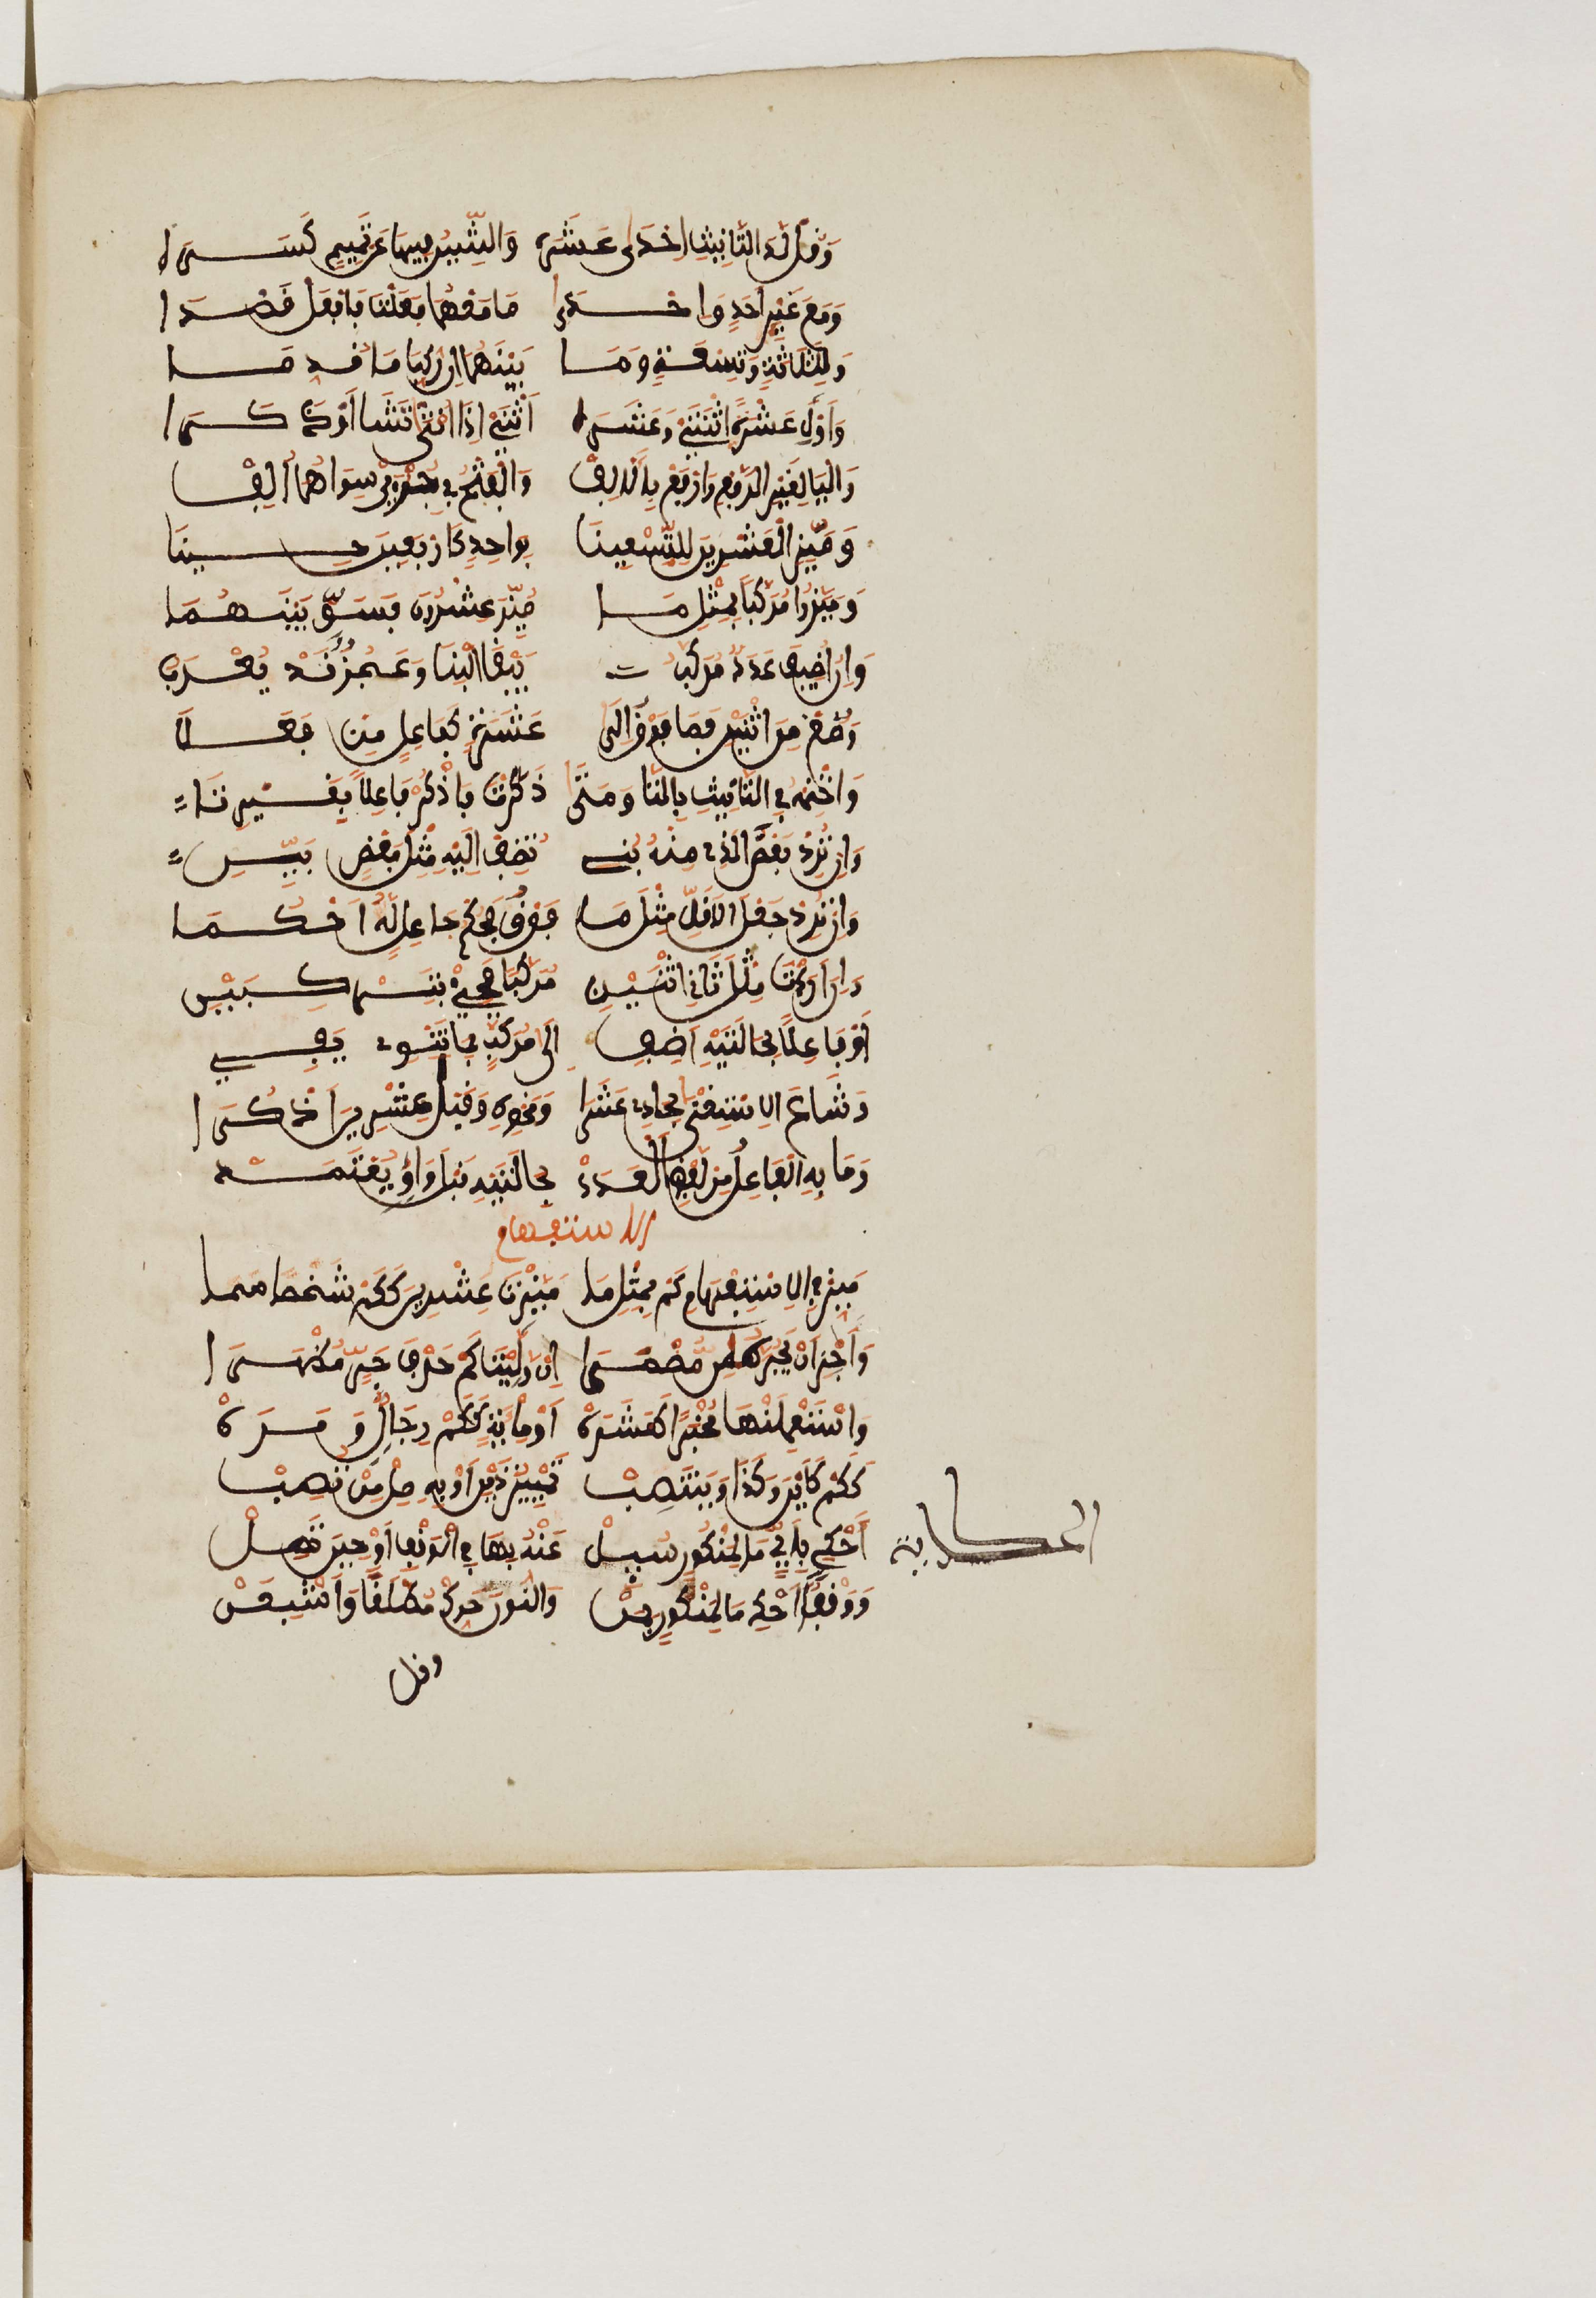 وَقُلْ لَدَى التَّانِيثِ اِحْدَى عَشَرَهْ وَالشِّينُ فِيهَا عَن تَمِيمٍ كَسَرَهْ
وَمَعَ غَيْرِ أَحَدٍ وَاحْدَى مَا مَعْهُمَا فَعَلْتَ فَافْعَلْ قَصْدَا
وَلِثَلَاثَةٍ وَتِسْعَةٍ وَمَا بَيْنَهُمَا إِنْ رُكِّبَا مَا قُدِّمَا
وَأَوْلِ عَشْرَةَ اثْنَتَيْ وَعَشَرَا اثْنَيْ إِذَا أُنْثَى تَشَا أَوْ ذَكَرَا
وَالْيَا لِغَيْرِ الرَّفْعِ وَارْفَعْ بِالْأَلِفْ وَالْفَتْحُ فِي جُزْءَيْ سِوَاهُمَا أُلِفْ
وَمَيِّزِ الْعِشْرِينَ لِلتِّسْعِينَا بِوَاحِدٍ كَأَرْبَعِينَ حِينَا
وَمَيَّزُوا مُرَكَّبًا بِمِثْلِ مَا مُيِّزَ عِشْرُونَ فَسَوِّيَنْهُمَا
وَإِنْ أُضِيفَ عَدَدٌ مُرَكَّبُ يَبْقَى الْبِنَا وَعَجُزٌ قَدْ يُعْرَبُ
وَصُغْ مِنَ اثْنَيْنِ فَمَا فَوْقُ إِلَى عَشَرَةٍ كَفَاعِلٍ مِنْ فَعَلَا
وَاخْتِمْهُ فِي التَّأْنِيثِ بِالتَّا وَمَتَى ذَكَّرْتَ فَاذْكُرْ فَاعِلًا بِغَيْرِ تَا
وَإِنْ تُرِدْ بَعْضَ الَّذِي مِنْهُ بُنِي تُضِفْ إِلَيْهِ مِثْلَ بَعْضٍ بَيِّنِ
وَإِنْ تُرِدْ جَعْلَ الْأَقَلِّ مِثْلَ مَا فَوْقُ فَحُكْمَ جَاعِلٍ لَهُ احْكُمَا
وَإِنْ أَرَدْتَ مِثْلَ ثَانِي اثْنَيْنِ مُرَكَّبًا فَجِئْ بِتَرْكِيبَيْنِ
أَوْ فَاعِلًا بِحَالَتَيْهِ أَضِفِ إِلَى مُرَكَّبٍ بِمَا تَنْوِي يَفِي
وَشَاعَ الِاسْتِغْنَا بِحَادِي عَشَرَا وَنَحْوِهِ وَقَبْلَ عِشْرِينَ اذْكُرَا
وَمَا بِهِ الْفَاعِلُ مِنْ لَفْظِ الْعَدَدْ بِحَالَتَيْهِ قَبْلَ وَاوٍ يُعْتَمَدْ
الاستفهام
مَيِّزْ فِي الِاسْتِفْهَامِ كَمْ بِمِثْلِ مَا مَيَّزْتَ عِشْرِينَ كَكَمْ شَخْصًا سَمَا
وَأَجِزَ انْ تَجُرَّهُ مِنْ مُضْمَرَا إِنْ وَلِيَتْ كَمْ حَرْفَ جَرٍّ مُظْهَرَا
وَاسْتَعْمِلَنْهَا مُخْبِرًا كَعَشَرَهْ أَوْ مِائَةٍ كَكَمْ رِجَالٍ وَمَرَهْ
كَكَمْ كَأَيِّنْ وَكَذَا وَيَنْتَصِبْ تَمْيِيزُ ذَيْنِ أَوْ بِهِ صِلْ مِنْ تُصِبْ
الحكاية
أَحْكِ بِأَيٍّ مَا لِمَنْكُورٍ سُئِلْ عَنْهُ بِهَا فِي الْوَقْفِ أَوْ حِينَ تَصِلْ
وَوَقْفًا احْكِ مَا لِمَنْكُورٍ بِمَنْ وَالنُّونَ حَرِّكْ مُطْلَقًا وَأَشْبِعَنْ
وقل